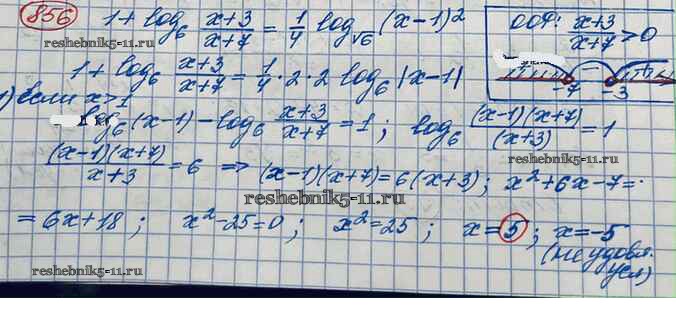 856 1+log₆ (x+3)/(x+7) = 1/4 log√6 (x-1)²
ООФ: (x+3)/(x+7) > 0
-7 -3
1+log₆ (x+3)/(x+7) = 1/4 · 2 · 2 log₆ |x-1|
1) если x>1
log₆(x-1) - log₆ (x+3)/(x+7) = 1 ; log₆ (x-1)(x+7)/(x+3) = 1
(x-1)(x+7)/(x+3) = 6 ⇒ (x-1)(x+7) = 6(x+3) ; x²+6x-7 =
reshebnik5-11.ru
reshebnik5-11.ru
= 6x+18 ; x²-25=0 ; x²=25 ; x=5 ; x=-5
(не удовл.
усл)
reshebnik5-11.ru
reshebnik5-11.ru